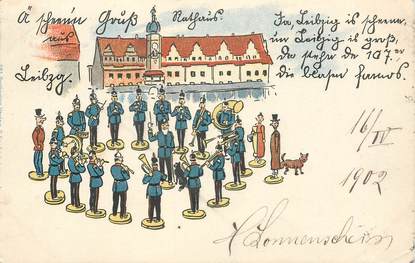 A scheen'n Gruß
aus
Leibzg.
Rathaus.
Ja, Leibzig is scheene,
un Leibzig is groß,
da stehn de 107.er
die blasen famos.
16/IV
1902
H. Sonnenschein